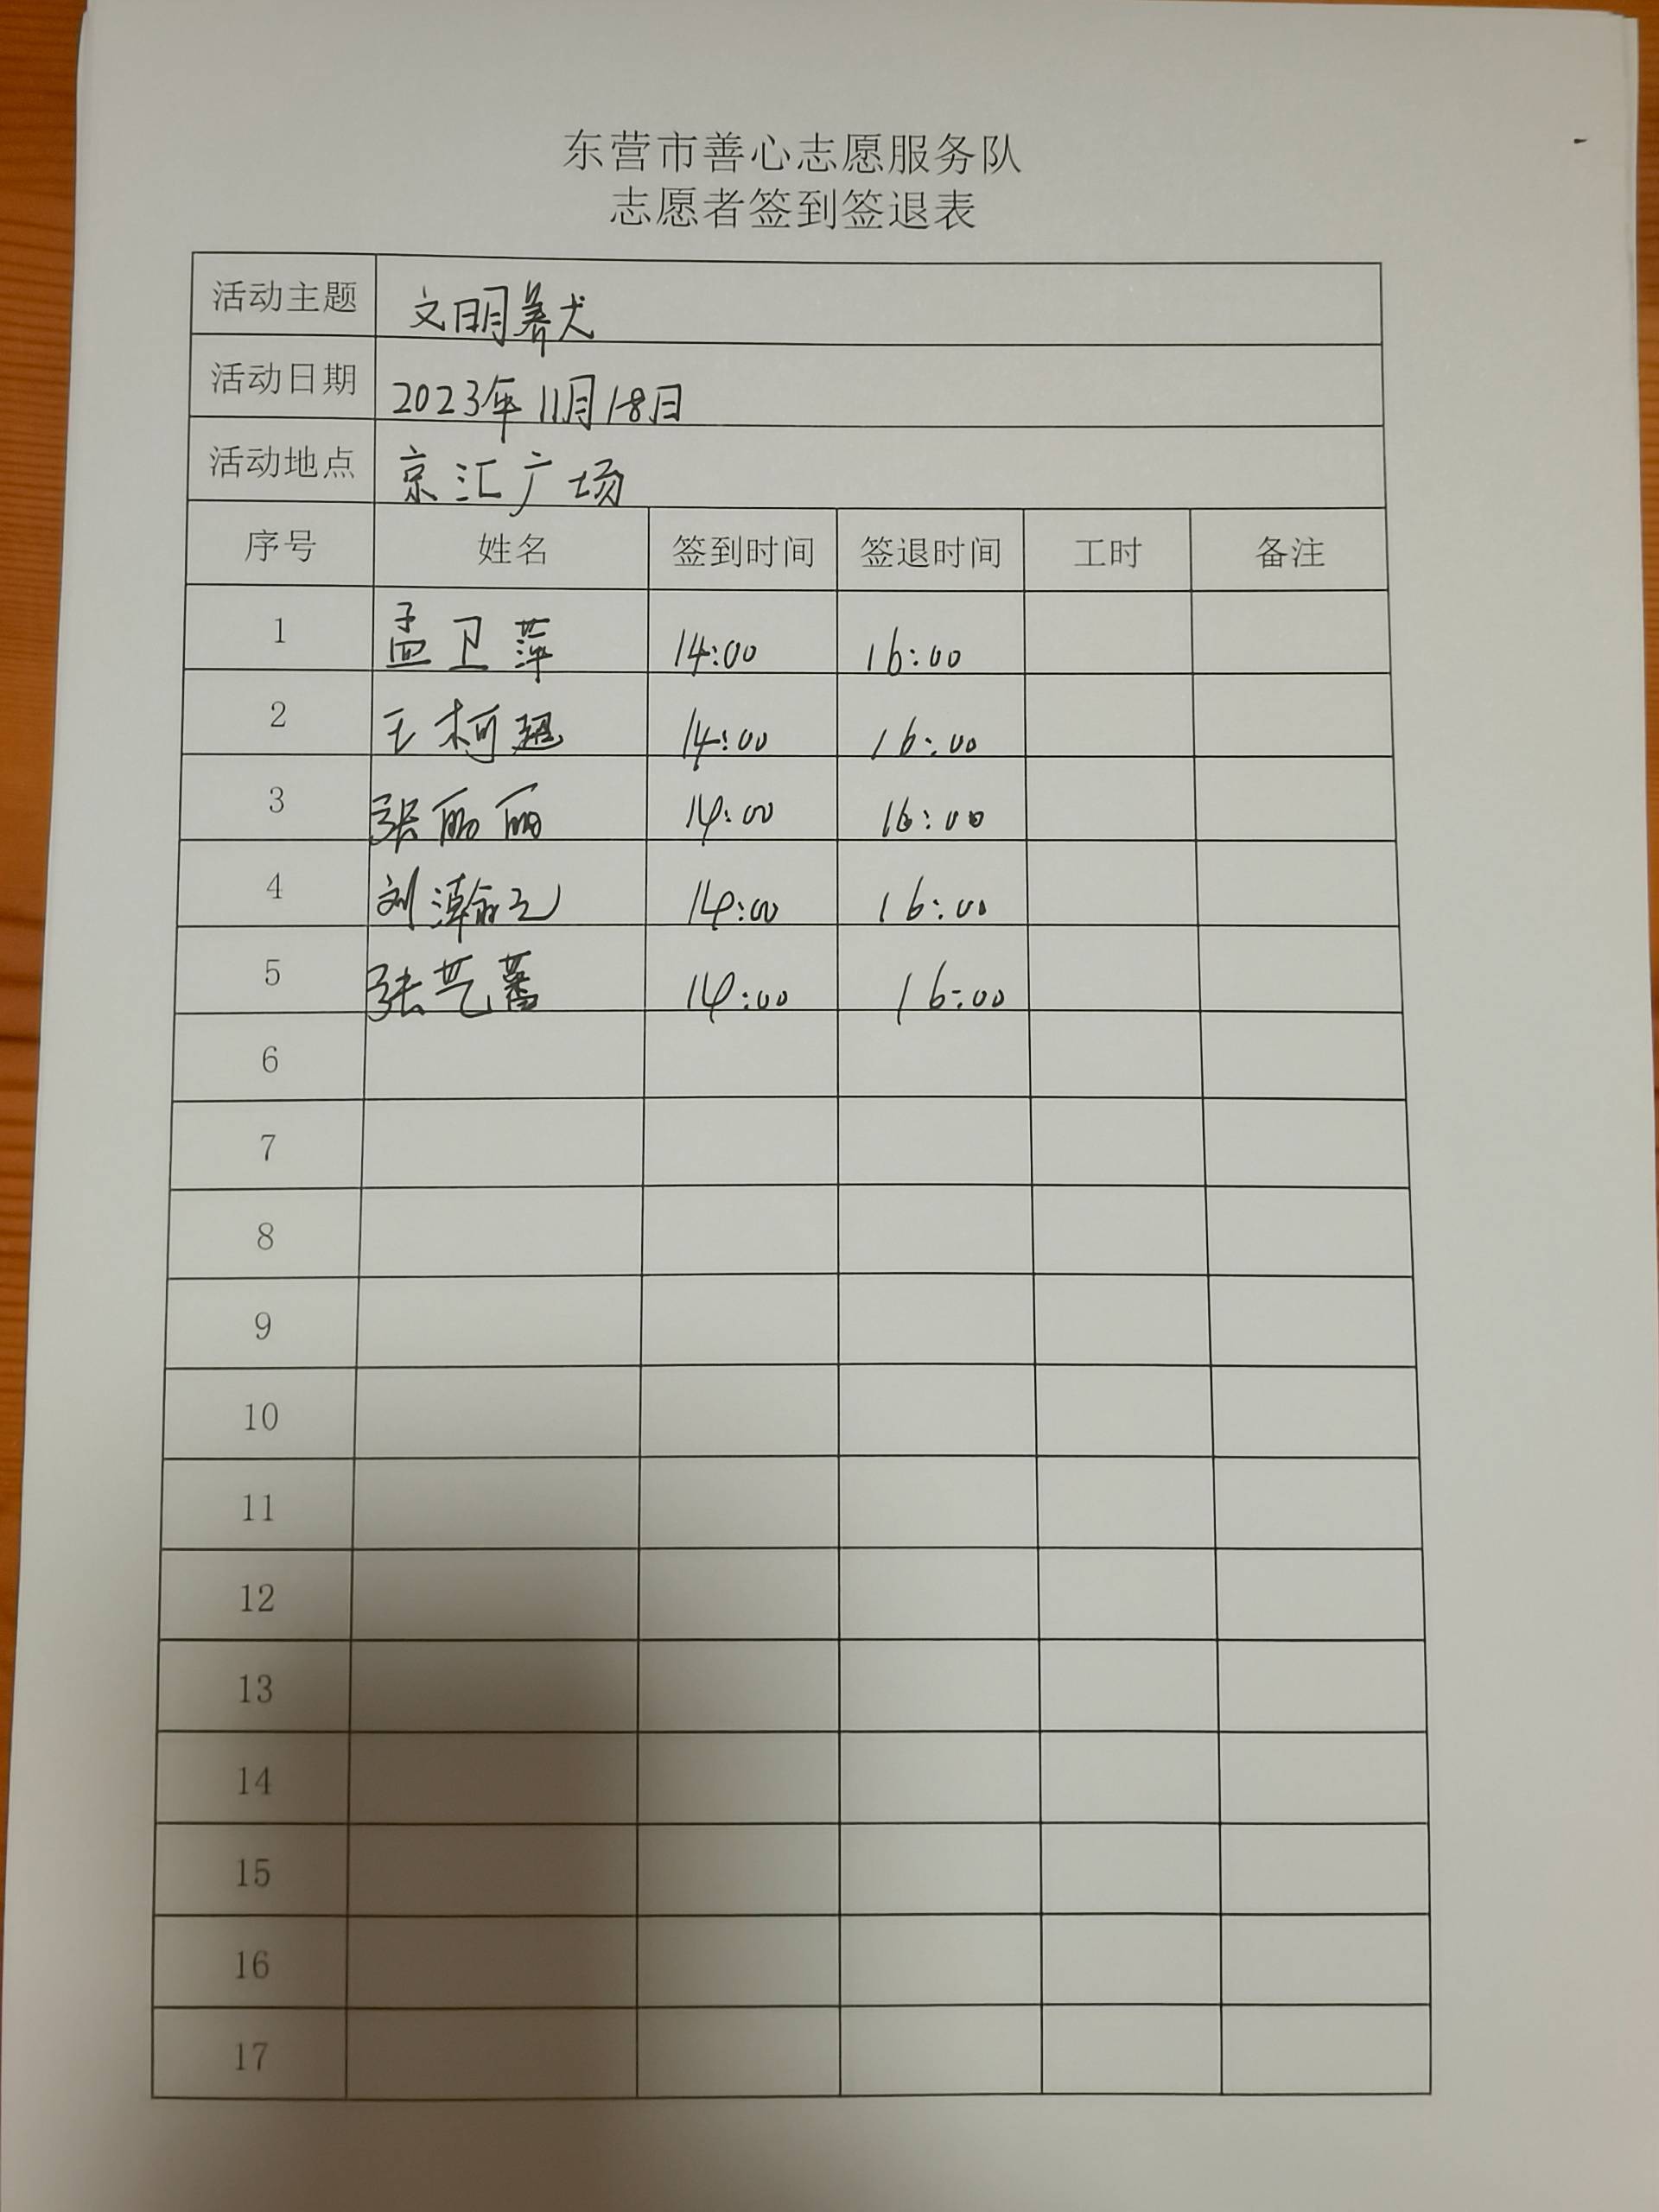 东营市善心志愿服务队
志愿者签到签退表
活动主题 文明养犬
活动日期 2023年11月18日
活动地点 京汇广场
序号 姓名 签到时间 签退时间 工时 备注
1 孟卫萍 14:00 16:00
2 王柯 14:00 16:00
3 张丽丽 14:00 16:00
4 刘瀚元 14:00 16:00
5 张艺 14:00 16:00
6
7
8
9
10
11
12
13
14
15
16
17